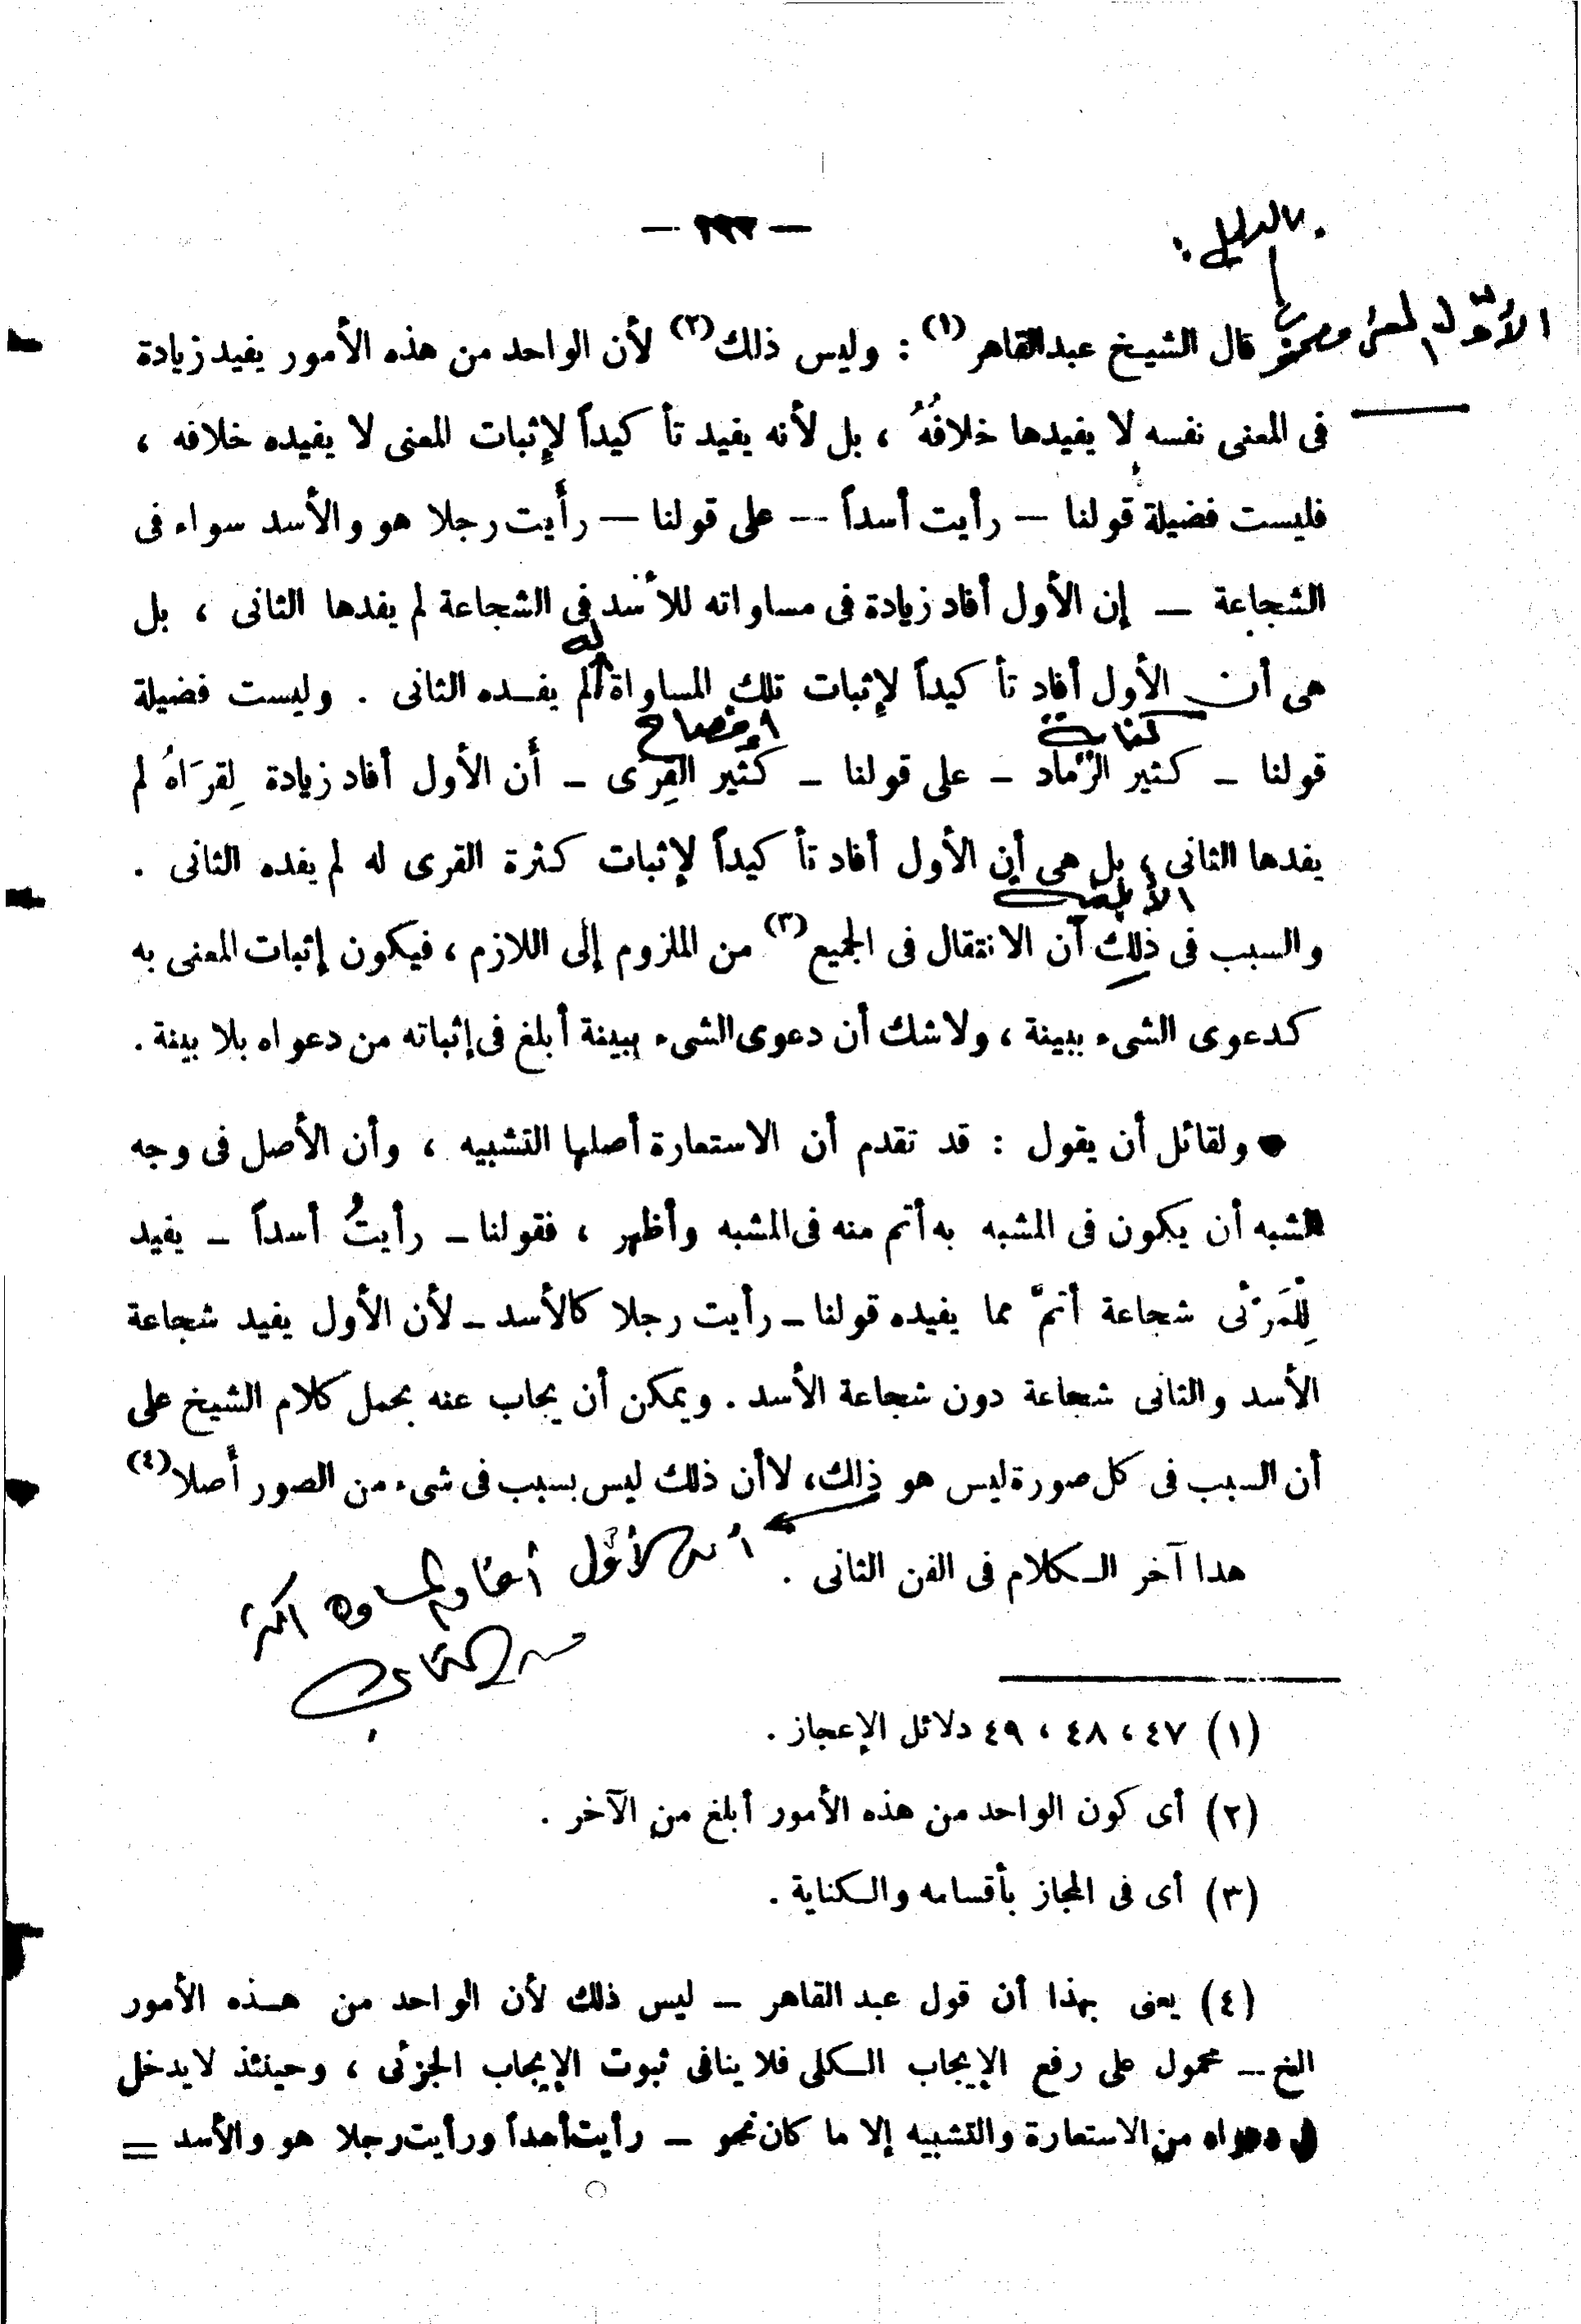 بالدليل :
قال الشيخ عبدالقاهر (١) : وليس ذلك (٢) لأن الواحد من هذه الأمور يفيد زيادة
فى المعنى نفسه لا يفيدها خلافُهُ ، بل لأنه يفيد تأكيداً لإثبات المعنى لا يفيده خلافه ،
فليست فضيلة قولنا — رأيت أسداً — على قولنا — رأيت رجلا هو والأسد سواء فى
الشجاعة — إن الأول أفاد زيادة فى مساواته للأسد فى الشجاعة لم يفدها الثانى ، بل
له
هى أن الأول أفاد تأكيداً لإثبات تلك المساواة لم يفده الثانى . وليست فضيلة
كناية إفصاح
قولنا — كثير الرَّماد — على قولنا — كثير القِرَى — أن الأول أفاد زيادة لِقِرَاهُ لم
يفدها الثانى ، بل هى أن الأول أفاد تأكيداً لإثبات كثرة القرى له لم يفده الثانى .
والسبب فى ذلك أن الانتقال فى الجميع (٣) من الملزوم إلى اللازم ، فيكون إثبات المعنى به
كدعوى الشىء ببينة ، ولاشك أن دعوى الشىء ببينة أبلغ فى إثباته من دعواه بلا بينة .
● ولقائل أن يقول : قد تقدم أن الاستعارة أصلها التشبيه ، وأن الأصل فى وجه
الشبه أن يكون فى المشبه به أتم منه فى المشبه وأظهر ، فقولنا — رأيتُ أسداً — يفيد
لِلْمَرْئى شجاعة أتمَّ مما يفيده قولنا — رأيت رجلا كالأسد — لأن الأول يفيد شجاعة
الأسد والثانى شجاعة دون شجاعة الأسد . ويمكن أن يجاب عنه بحمل كلام الشيخ على
أن السبب فى كل صورة ليس هو ذلك، لا أن ذلك ليس بسبب فى شىء من الصور أصلا (٤)
هدا آخر الـكلام فى الفن الثانى .
(١) ٤٧ ، ٤٨ ، ٤٩ دلائل الإعجاز .
(٢) أى كون الواحد من هذه الأمور أبلغ من الآخر .
(٣) أى فى المجاز بأقسامه والـكناية .
(٤) يعنى بهذا أن قول عبد القاهر — ليس ذلك لأن الواحد من هـذه الأمور
الخ — محمول على رفع الإيجاب الـكلى فلا ينافى ثبوت الإيجاب الجزئى ، وحينئذ لايدخل
من الاستعارة والتشبيه إلا ما كان نحو — رأيت أسداً ورأيت رجلا هو والأسد =